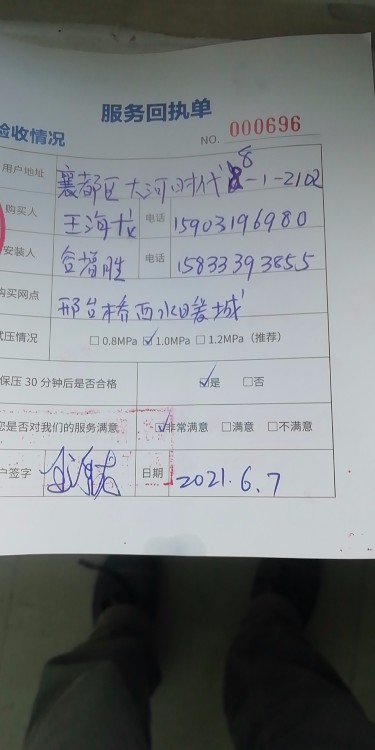 服务回执单
验收情况
NO. 000696
用户地址 襄都区大河时代8-1-2102
购买人 王海 电话 15903196980
安装人 谷增胜 电话 15833393855
购买网点 邢台桥西水暖城
试压情况 □ 0.8MPa ☑ 1.0MPa □ 1.2MPa（推荐）
保压 30 分钟后是否合格 ☑是 □否
您是否对我们的服务满意 ☑非常满意 □满意 □不满意
户签字 日期 2021.6.7